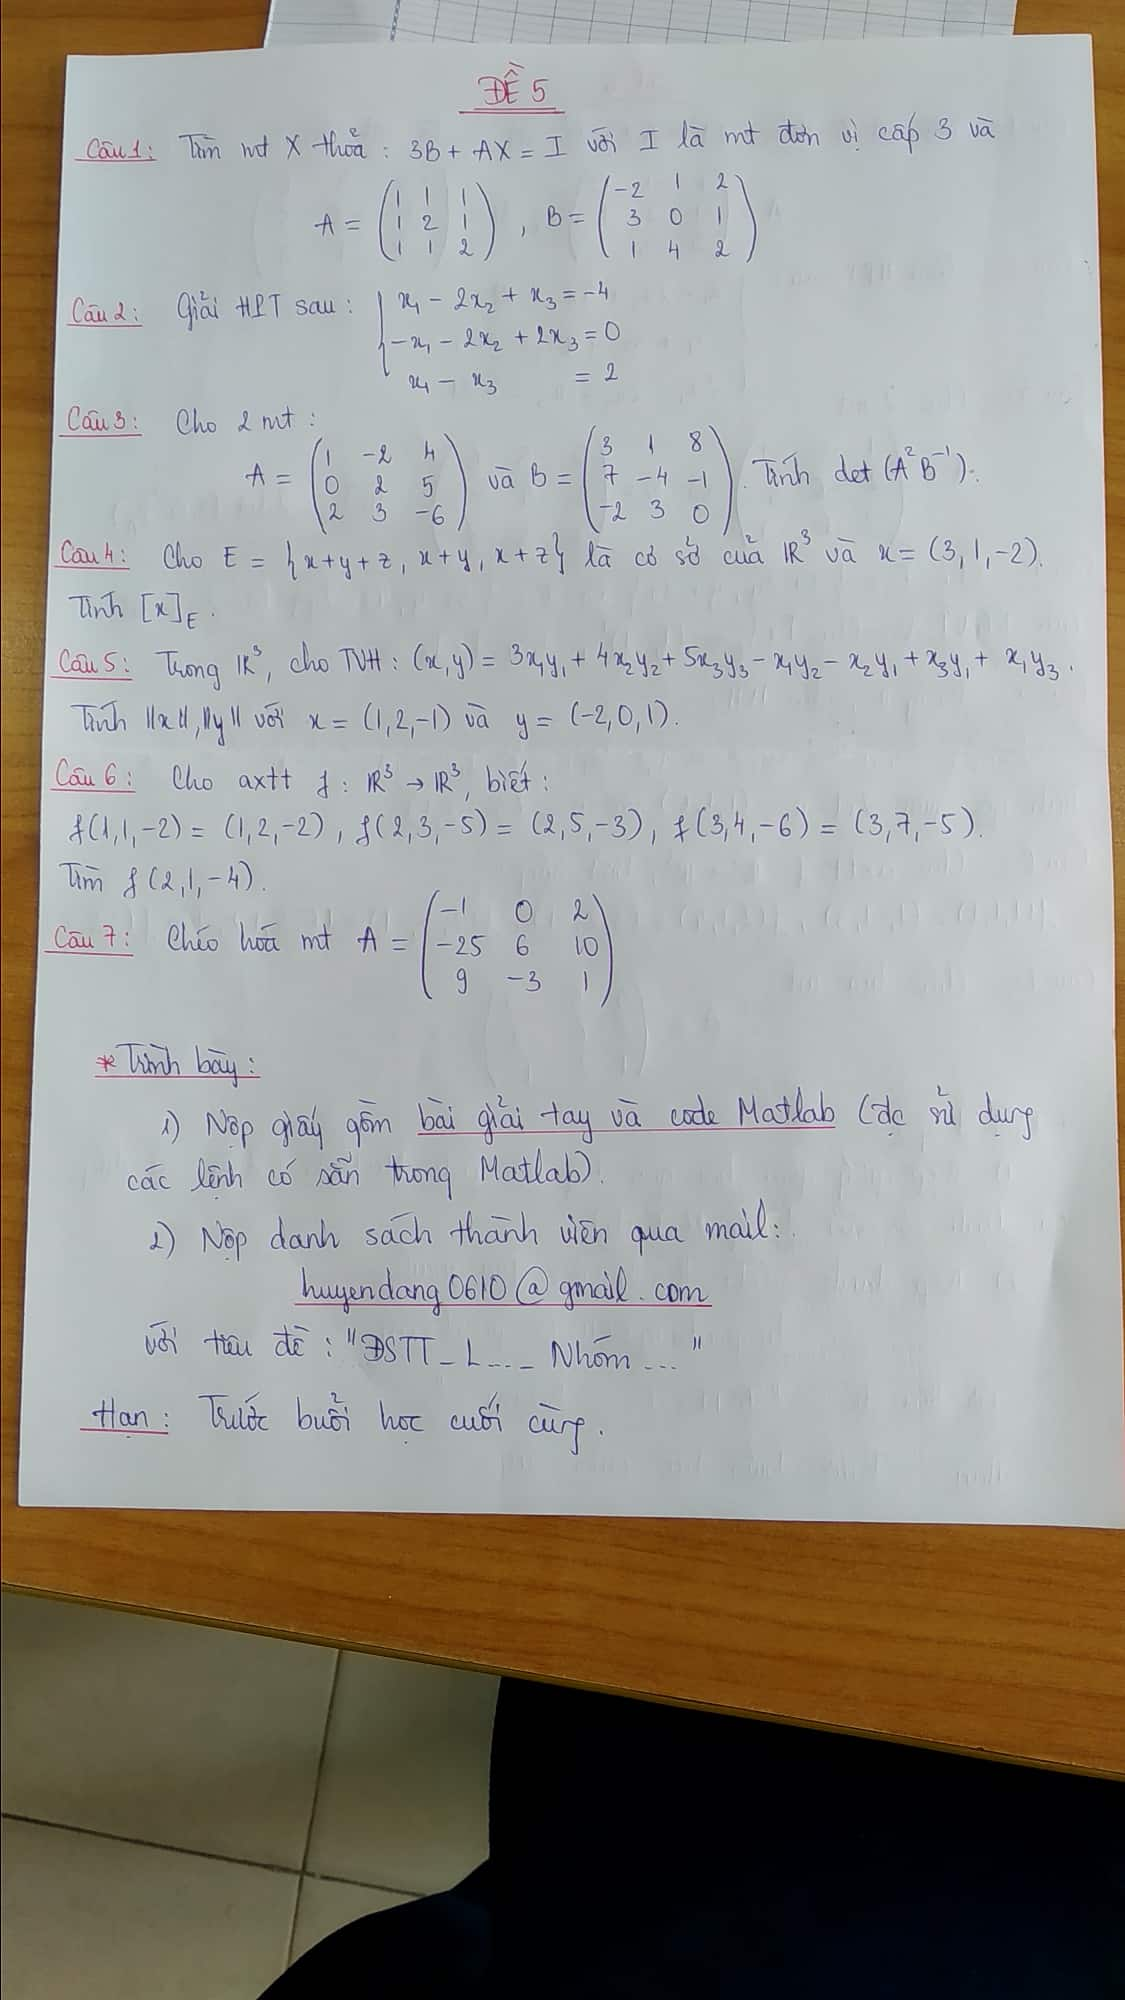 ĐỀ 5
Câu 1: Tìm mt X thoả : 3B + AX = I với I là mt đơn vị cấp 3 và
A = (1 1 1; 1 2 1; 1 1 2), B = (-2 1 2; 3 0 1; 1 4 2)
Câu 2: Giải HPT sau : { x₁ - 2x₂ + x₃ = -4
-x₁ - 2x₂ + 2x₃ = 0
x₁ - x₃ = 2
Câu 3: Cho 2 mt :
A = (1 -2 4; 0 2 5; 2 3 -6) và B = (3 1 8; 7 -4 -1; -2 3 0). Tính det (A²B⁻¹).
Câu 4: Cho E = {x+y+z, x+y, x+z} là cơ sở của ℝ³ và x = (3,1,-2).
Tính [x]_E.
Câu 5: Trong ℝ³, cho TVH : (x,y) = 3x₁y₁ + 4x₂y₂ + 5x₃y₃ - x₁y₂ - x₂y₁ + x₃y₁ + x₁y₃.
Tính ||x||, ||y|| với x = (1,2,-1) và y = (-2,0,1).
Câu 6: Cho axtt f : ℝ³ → ℝ³, biết :
f(1,1,-2) = (1,2,-2), f(2,3,-5) = (2,5,-3), f(3,4,-6) = (3,7,-5).
Tìm f(2,1,-4).
Câu 7: Chéo hoá mt A = (-1 0 2; -25 6 10; 9 -3 1)
* Trình bày :
1) Nộp giấy gồm bài giải tay và code Matlab (đc sử dụng
các lệnh có sẵn trong Matlab).
2) Nộp danh sách thành viên qua mail :
huyendang0610@gmail.com
với tiêu đề : "ĐSTT_L...._ Nhóm ..."
Hạn : Trước buổi học cuối cùng.